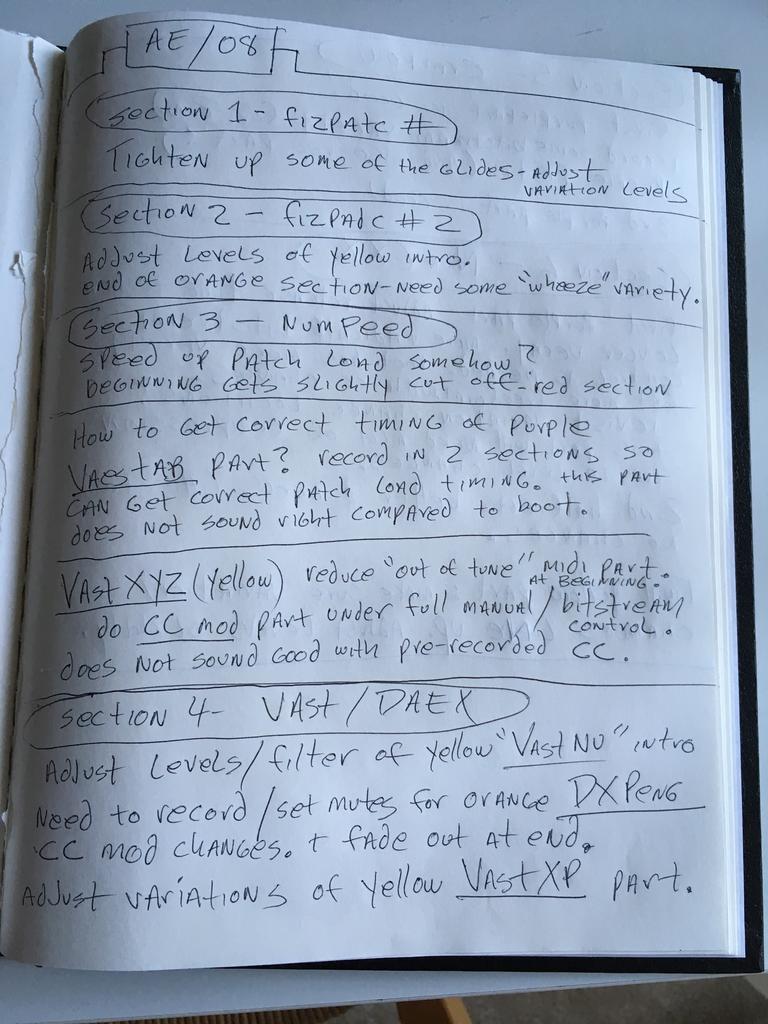 AE/08
Section 1 - fizPAtc #
Tighten up some of the Glides - Adjust
VARIATION Levels
Section 2 - fizPAdc # 2
Adjust Levels of Yellow intro.
End of ORANGE Section - Need some "wheeze" VARiety.
Section 3 - Numpeed
Speed up PAtch LOAd somehow?
beginning Gets slightly cut off - red section
How to Get correct timing of Purple
VAestAB part? record in 2 sections so
CAN Get correct PAtch LOAd timing. this part
does Not sound right compared to boot.
VAst XYZ (Yellow) reduce "out of tune" midi PArt.
At Beginning.
do CC mod PArt under full MANUAL/bitstream
CONTROL.
does Not sound Good with pre-recorded CC.
Section 4 - VAst / DAEX
Adjust Levels/filter of Yellow "Vast NU" intro
Need to record/set mutes for ORANGE DXPENG
CC mod changes. + fade out At end.
Adjust VARiAtions of Yellow VAstXP PArt.